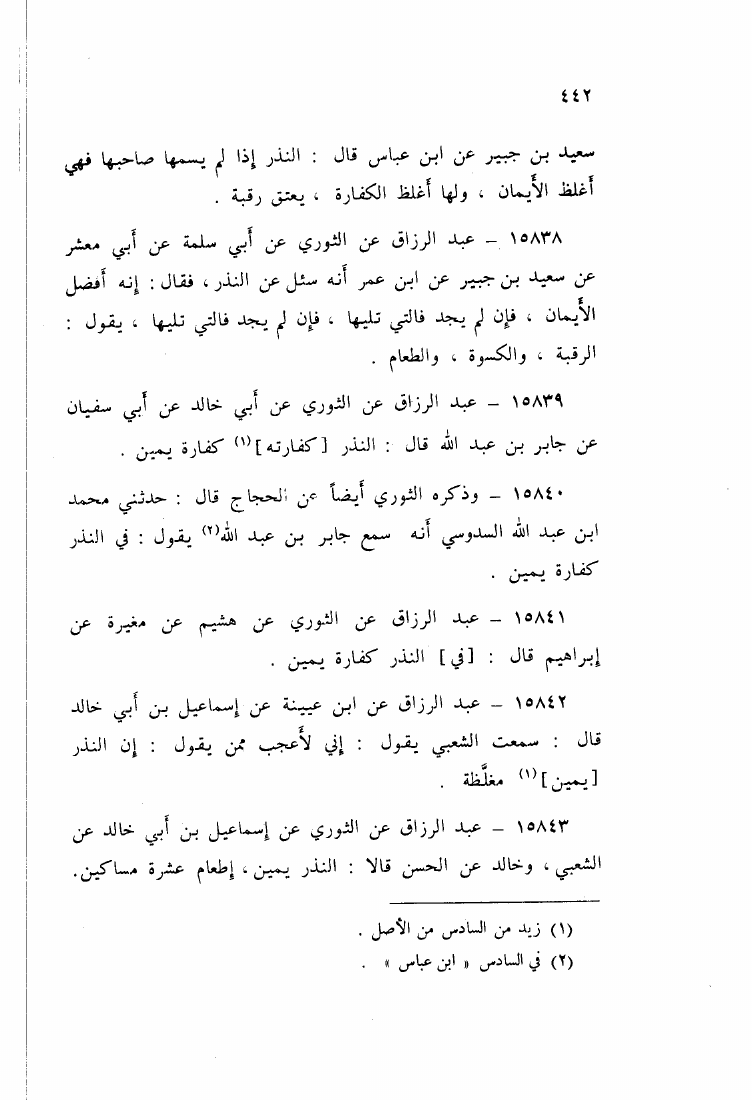 ٤٤٢
سعيد بن جبير عن ابن عباس قال : النذر إذا لم يسمها صاحبها فهي
أغلظ الأَيمان ، ولها أغلظ الكفارة ، يعتق رقبة .
١٥٨٣٨ – عبد الرزاق عن الثوري عن أبي سلمة عن أبي معشر
عن سعيد بن جبير عن ابن عمر أنه سئل عن النذر ، فقال : إنه أفضل
الأَيمان ، فإن لم يجد فالتي تليها ، فإن لم يجد فالتي تليها ، يقول :
الرقبة ، والكسوة ، والطعام .
١٥٨٣٩ – عبد الرزاق عن الثوري عن أبي خالد عن أبي سفيان
عن جابر بن عبد الله قال : النذر [كفارته](١) كفارة يمين .
١٥٨٤٠ – وذكره الثوري أيضاً عن الحجاج قال : حدثني محمد
ابن عبد الله السدوسي أنه سمع جابر بن عبد الله(٢) يقول : في النذر
كفارة يمين .
١٥٨٤١ – عبد الرزاق عن الثوري عن هشيم عن مغيرة عن
إبراهيم قال : [في] النذر كفارة يمين .
١٥٨٤٢ – عبد الرزاق عن ابن عيينة عن إسماعيل بن أبي خالد
قال : سمعت الشعبي يقول : إني لأَعجب ممن يقول : إن النذر
[يمين](١) مغلَّظة .
١٥٨٤٣ – عبد الرزاق عن الثوري عن إسماعيل بن أبي خالد عن
الشعبي ، وخالد عن الحسن قالا : النذر يمين ، إطعام عشرة مساكين.
(١) زيد من السادس من الأصل .
(٢) في السادس « ابن عباس » .